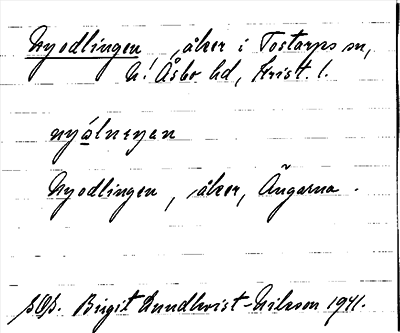 Nyodlingen, åker i Tostarps sn,
N. Åsbo hd, Krist. l.
nyålnεγεn
Nyodlingen, åker, Ängarna.
Birgit Lundkvist-Nilsson 1941.